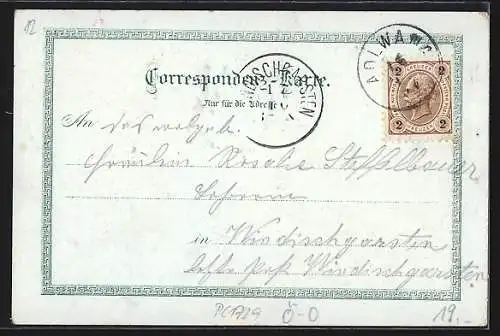 12
Correspondenz-Karte.
Nur für die Adresse
ADLWANG
2 2
2 2
An das wolgeb.
Fräulein Rosalie Staffelbauer
Lehrerin
in Windischgarsten
letzte Post Windischgarsten
PC1729 Ö-O 19.-